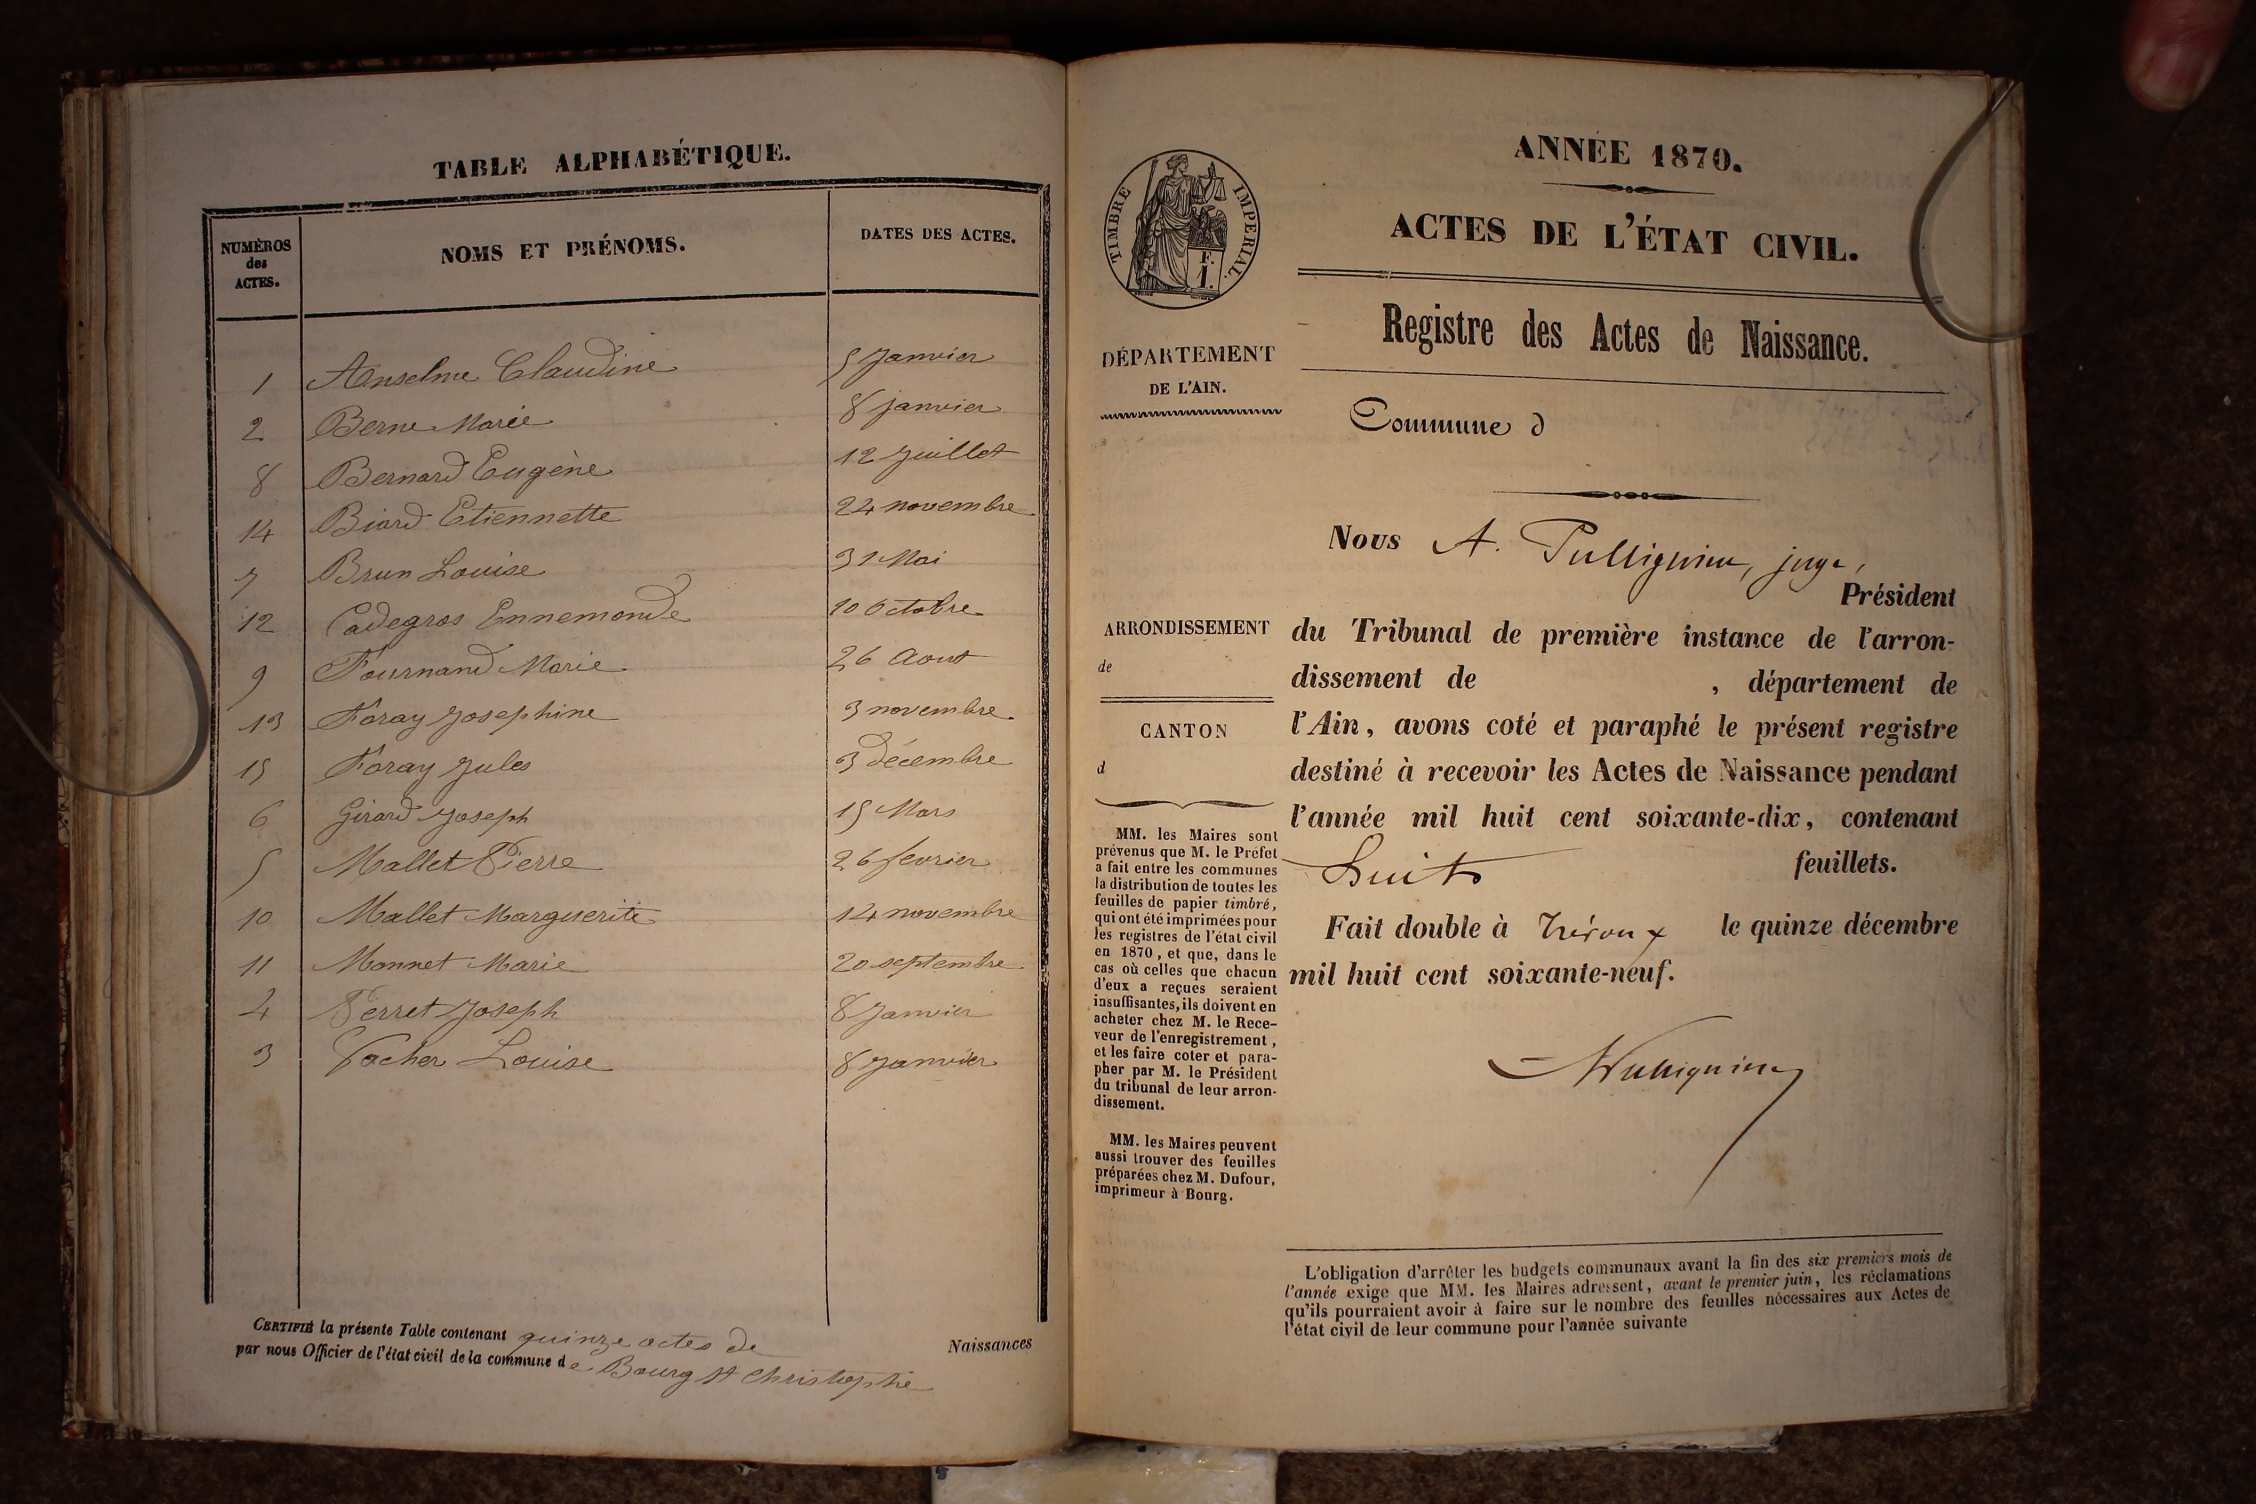 TABLE ALPHABÉTIQUE.
NUMÈROS
des
ACTES.
NOMS ET PRÉNOMS.
DATES DES ACTES.
1 Anselme Claudine 5 Janvier
2 Berne Marie 8 janvier
8 Bernard Eugène 12 Juillet
14 Biard Etiennette 24 novembre
7 Brun Louise 31 Mai
12 Cadegros Ennemonde 10 Octobre
9 Fournand Marie 26 Aout
13 Foray Josephine 3 novembre
15 Foray Jules 3 décembre
6 Girard Joseph 15 Mars
5 Mallet Pierre 26 fevrier
10 Mallet Marguerite 14 novembre
11 Monnet Marie 20 septembre
4 Perret Joseph 8 Janvier
3 Vacher Louise 8 Janvier
CERTIFIÉ la présente Table contenant quinze actes de Naissances
par nous Officier de l'état civil de la commune de Bourg St Christophe
ANNÉE 1870.
ACTES DE L'ÉTAT CIVIL.
TIMBRE IMPÉRIAL.
F.
1.
Registre des Actes de Naissance.
DÉPARTEMENT
DE L'AIN.
Commune d
Nous A. , juge,
Président
du Tribunal de première instance de l'arron-
dissement de , département de
l'Ain, avons coté et paraphé le présent registre
destiné à recevoir les Actes de Naissance pendant
l'année mil huit cent soixante-dix, contenant
huit feuillets.
Fait double à Trévoux le quinze décembre
mil huit cent soixante-neuf.
ARRONDISSEMENT
de
CANTON
d
MM. les Maires sont
prévenus que M. le Préfet
a fait entre les communes
la distribution de toutes les
feuilles de papier timbré,
qui ont été imprimées pour
les registres de l'état civil
en 1870, et que, dans le
cas où celles que chacun
d'eux a reçues seraient
insuffisantes, ils doivent en
acheter chez M. le Rece-
veur de l'enregistrement,
et les faire coter et para-
pher par M. le Président
du tribunal de leur arron-
dissement.
MM. les Maires peuvent
aussi trouver des feuilles
préparées chez M. Dufour,
imprimeur à Bourg.
L'obligation d'arrêter les budgets communaux avant la fin des six premiers mois de
l'année exige que MM. les Maires adressent, avant le premier juin, les réclamations
qu'ils pourraient avoir à faire sur le nombre des feuilles nécessaires aux Actes de
l'état civil de leur commune pour l'année suivante